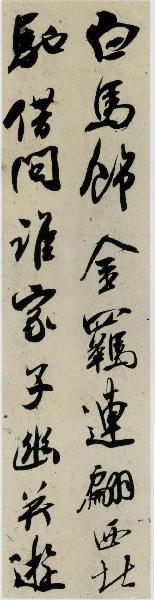 白馬飾金羈連翩西北
馳借問誰家子幽并遊